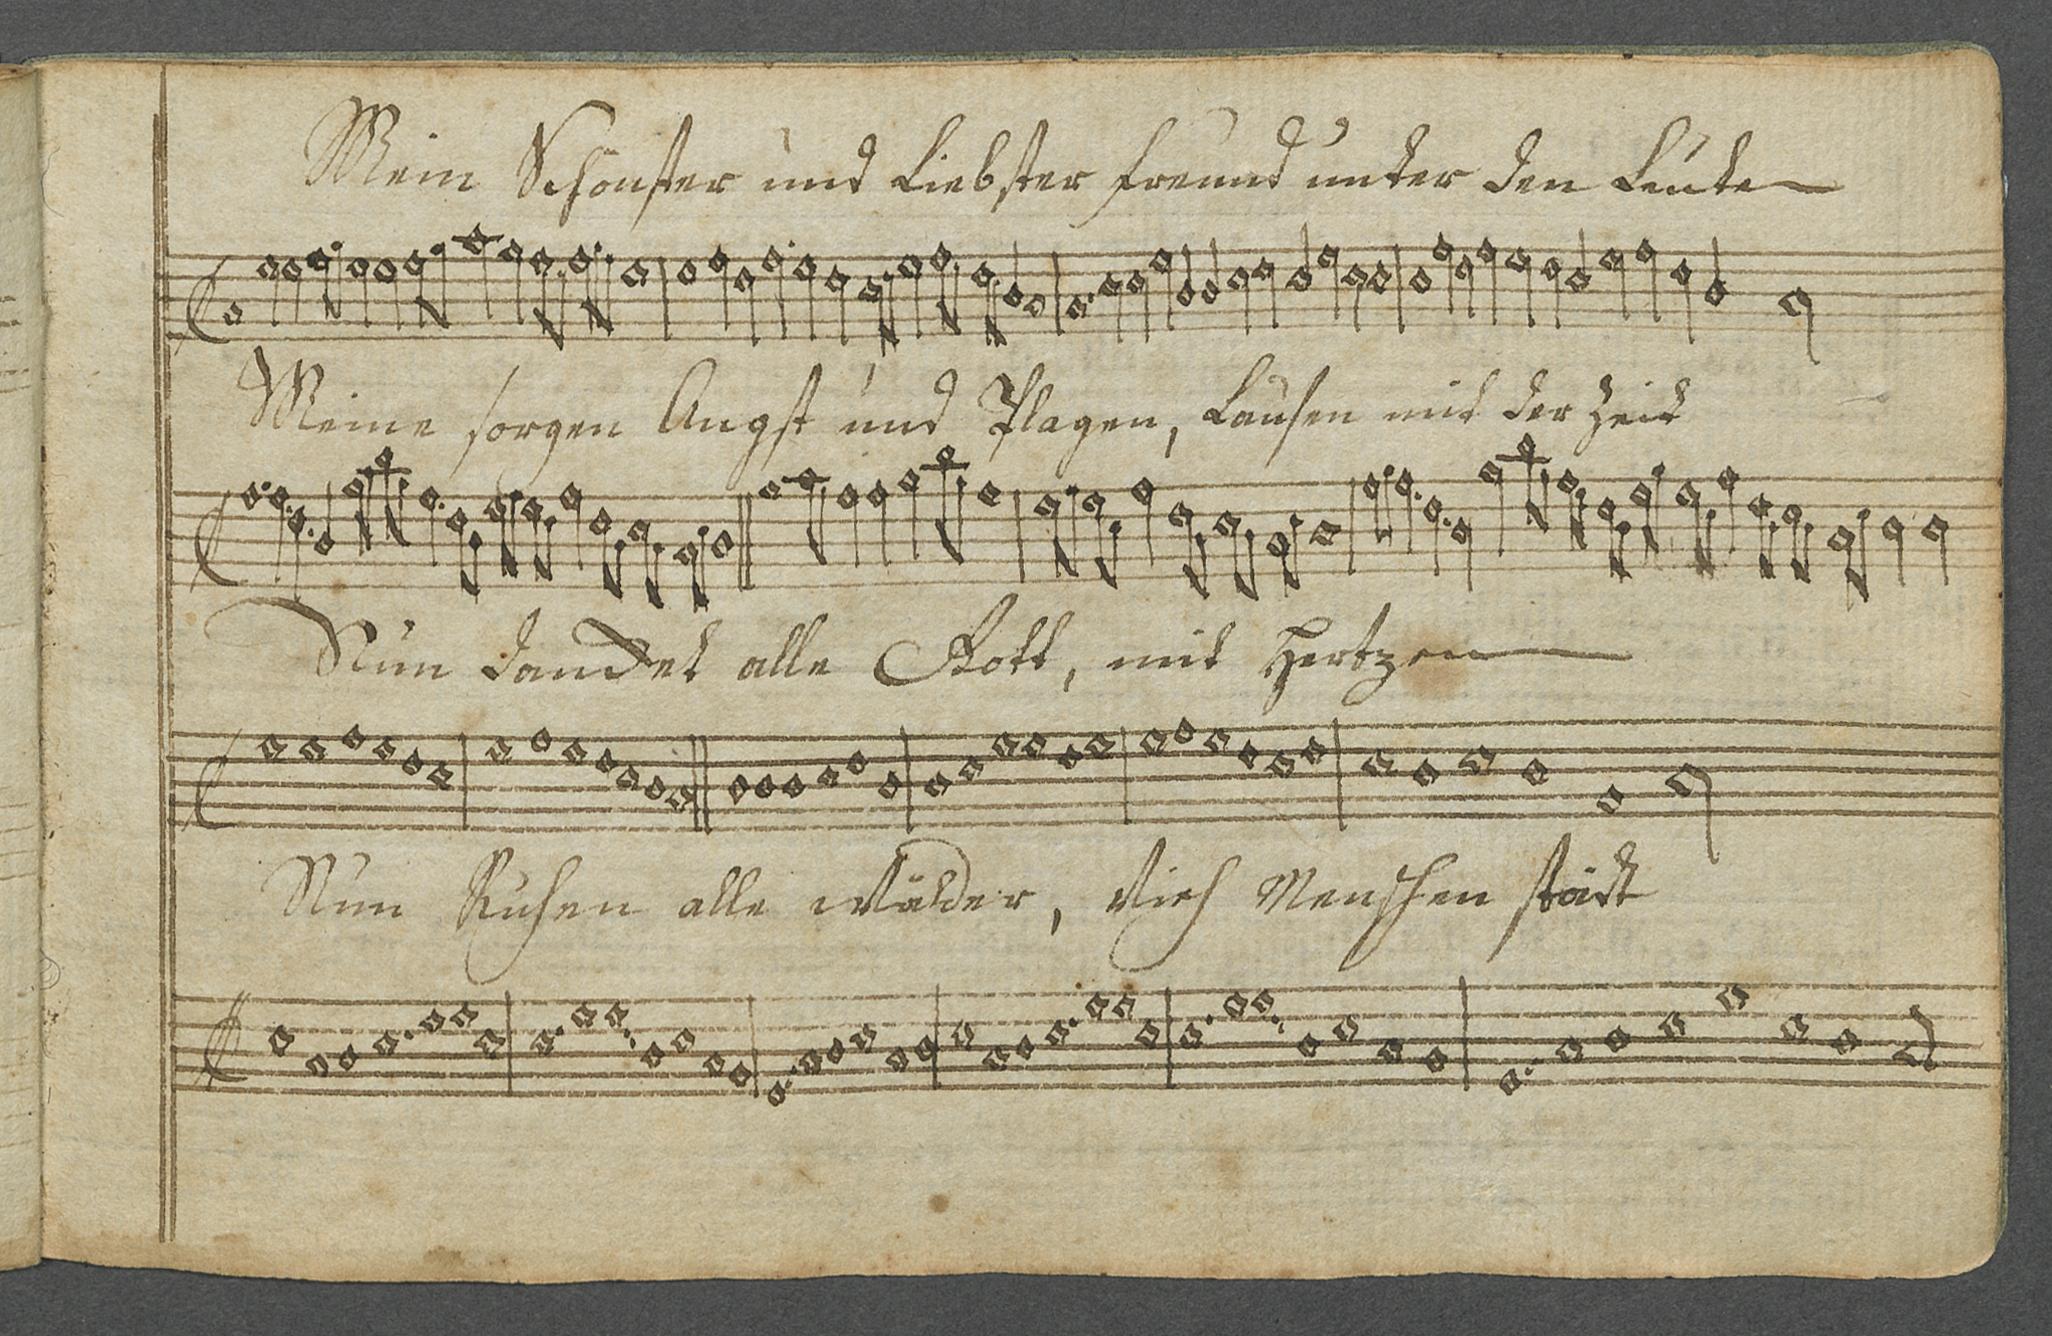 Mein Schonster und Liebster freund unter den Leuten
Meine sorgen Angst und Plagen, Laufen mit der Zeit
Nun dancket alle Gott, mit Hertzen
Nun Ruhen alle Wälder, Vieh Menschen städt